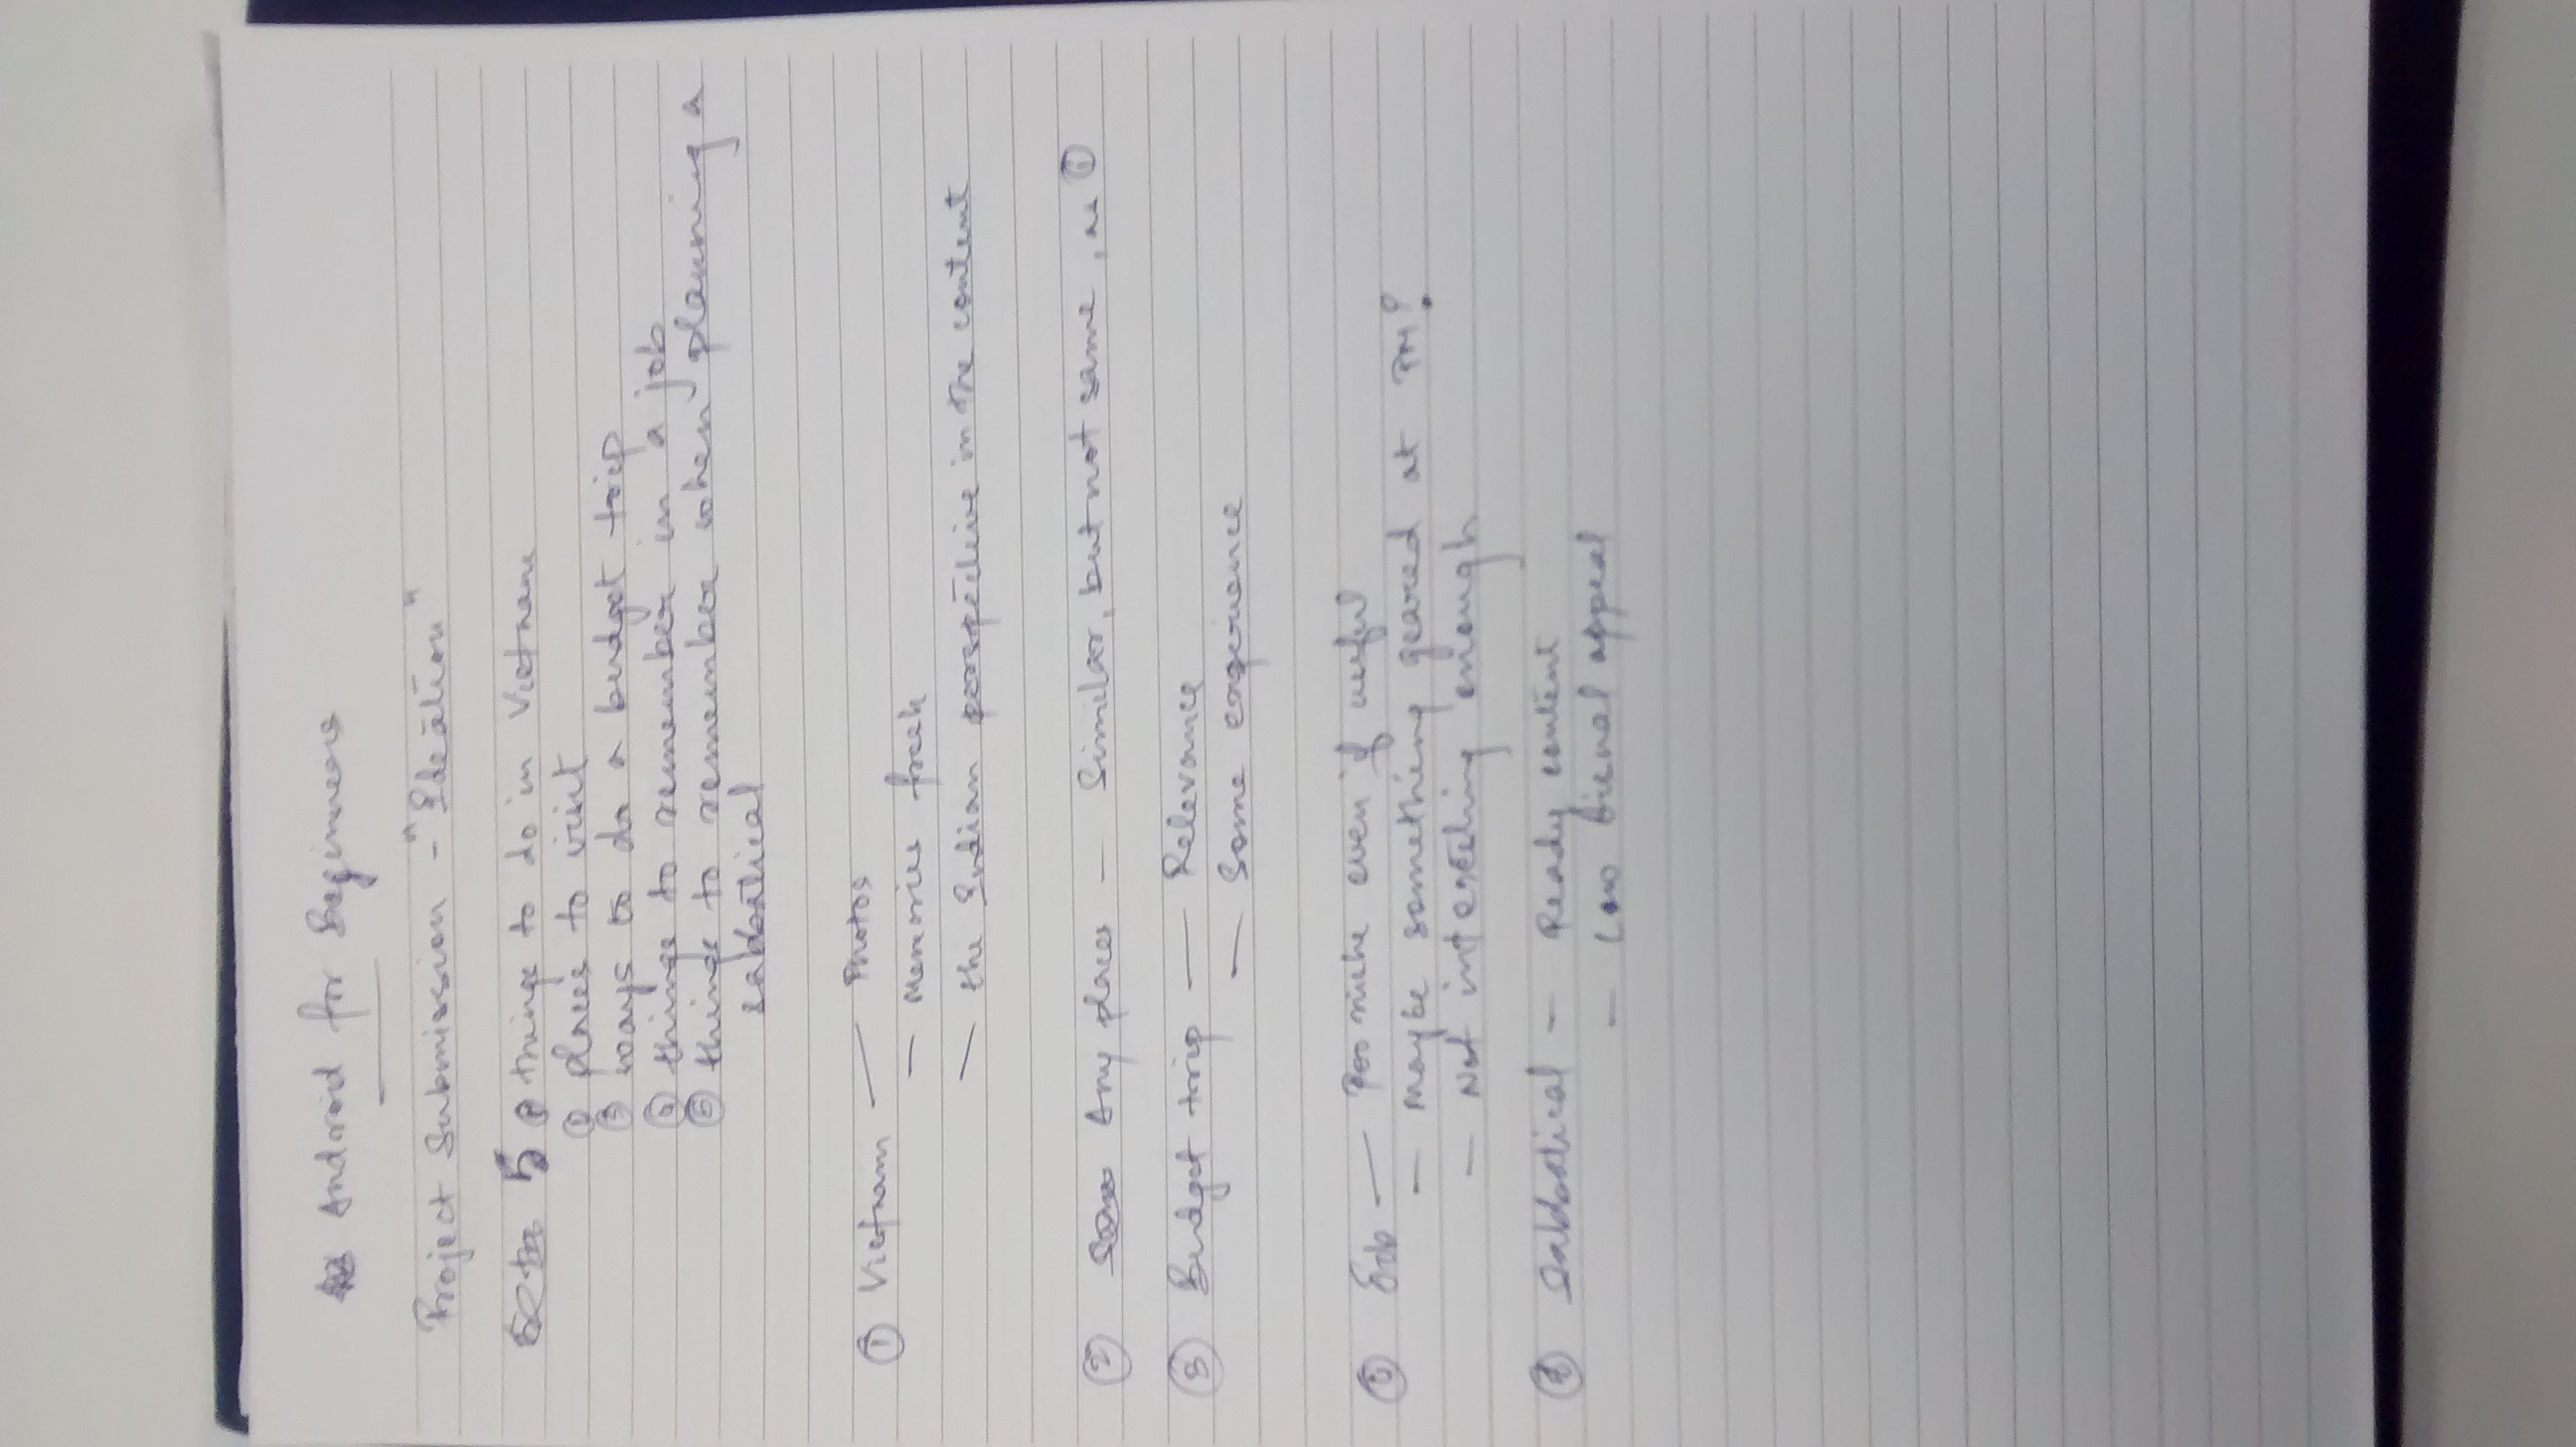 Android for Beginners
Project Submission - "Ideation"
5 ① things to do in Vietnam
② places to visit
③ ways to do a budget trip
④ things to remember in a job
⑤ things to remember when planning a
sabbatical
① Vietnam — Photos
— Memories fresh
— the Indian perspective in the content
② Any places — Similar, but not same, as ①
③ Budget trip — Relevance
— Some experience
Job — Too niche even if useful
— Maybe something geared at PM?
— Not interesting enough
Sabbatical — Ready content
— Low visual appeal